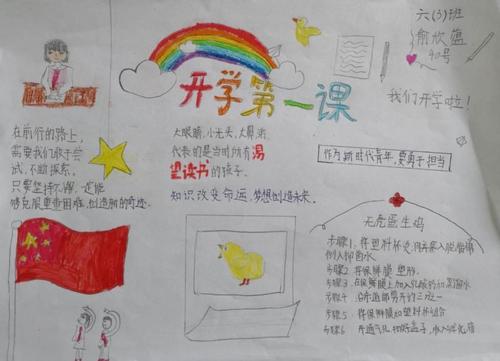 六(3)班
俞欣蕴
40号
开学第一课
我们开学啦!
在前行的路上,
需要我们敢于尝
试,不断探索。
只要坚持不懈,一定能
够克服重重困难,创造新的奇迹。
大眼睛,小光头,大鼻涕
代表的是当时所有渴
望读书的孩子。
知识改变命运,梦想创造未来。
作为新时代青年,要勇于担当
无壳蛋生鸡
步骤1、将塑料杯
倒入抑菌水
步骤2 将保鲜膜 塑形
步骤3 在保鲜膜上加入乳酸钙和蒸馏水
步骤4
步骤5 将保鲜膜和塑料杯结合
步骤6 开通气孔 扣好盖子,放入孵化箱